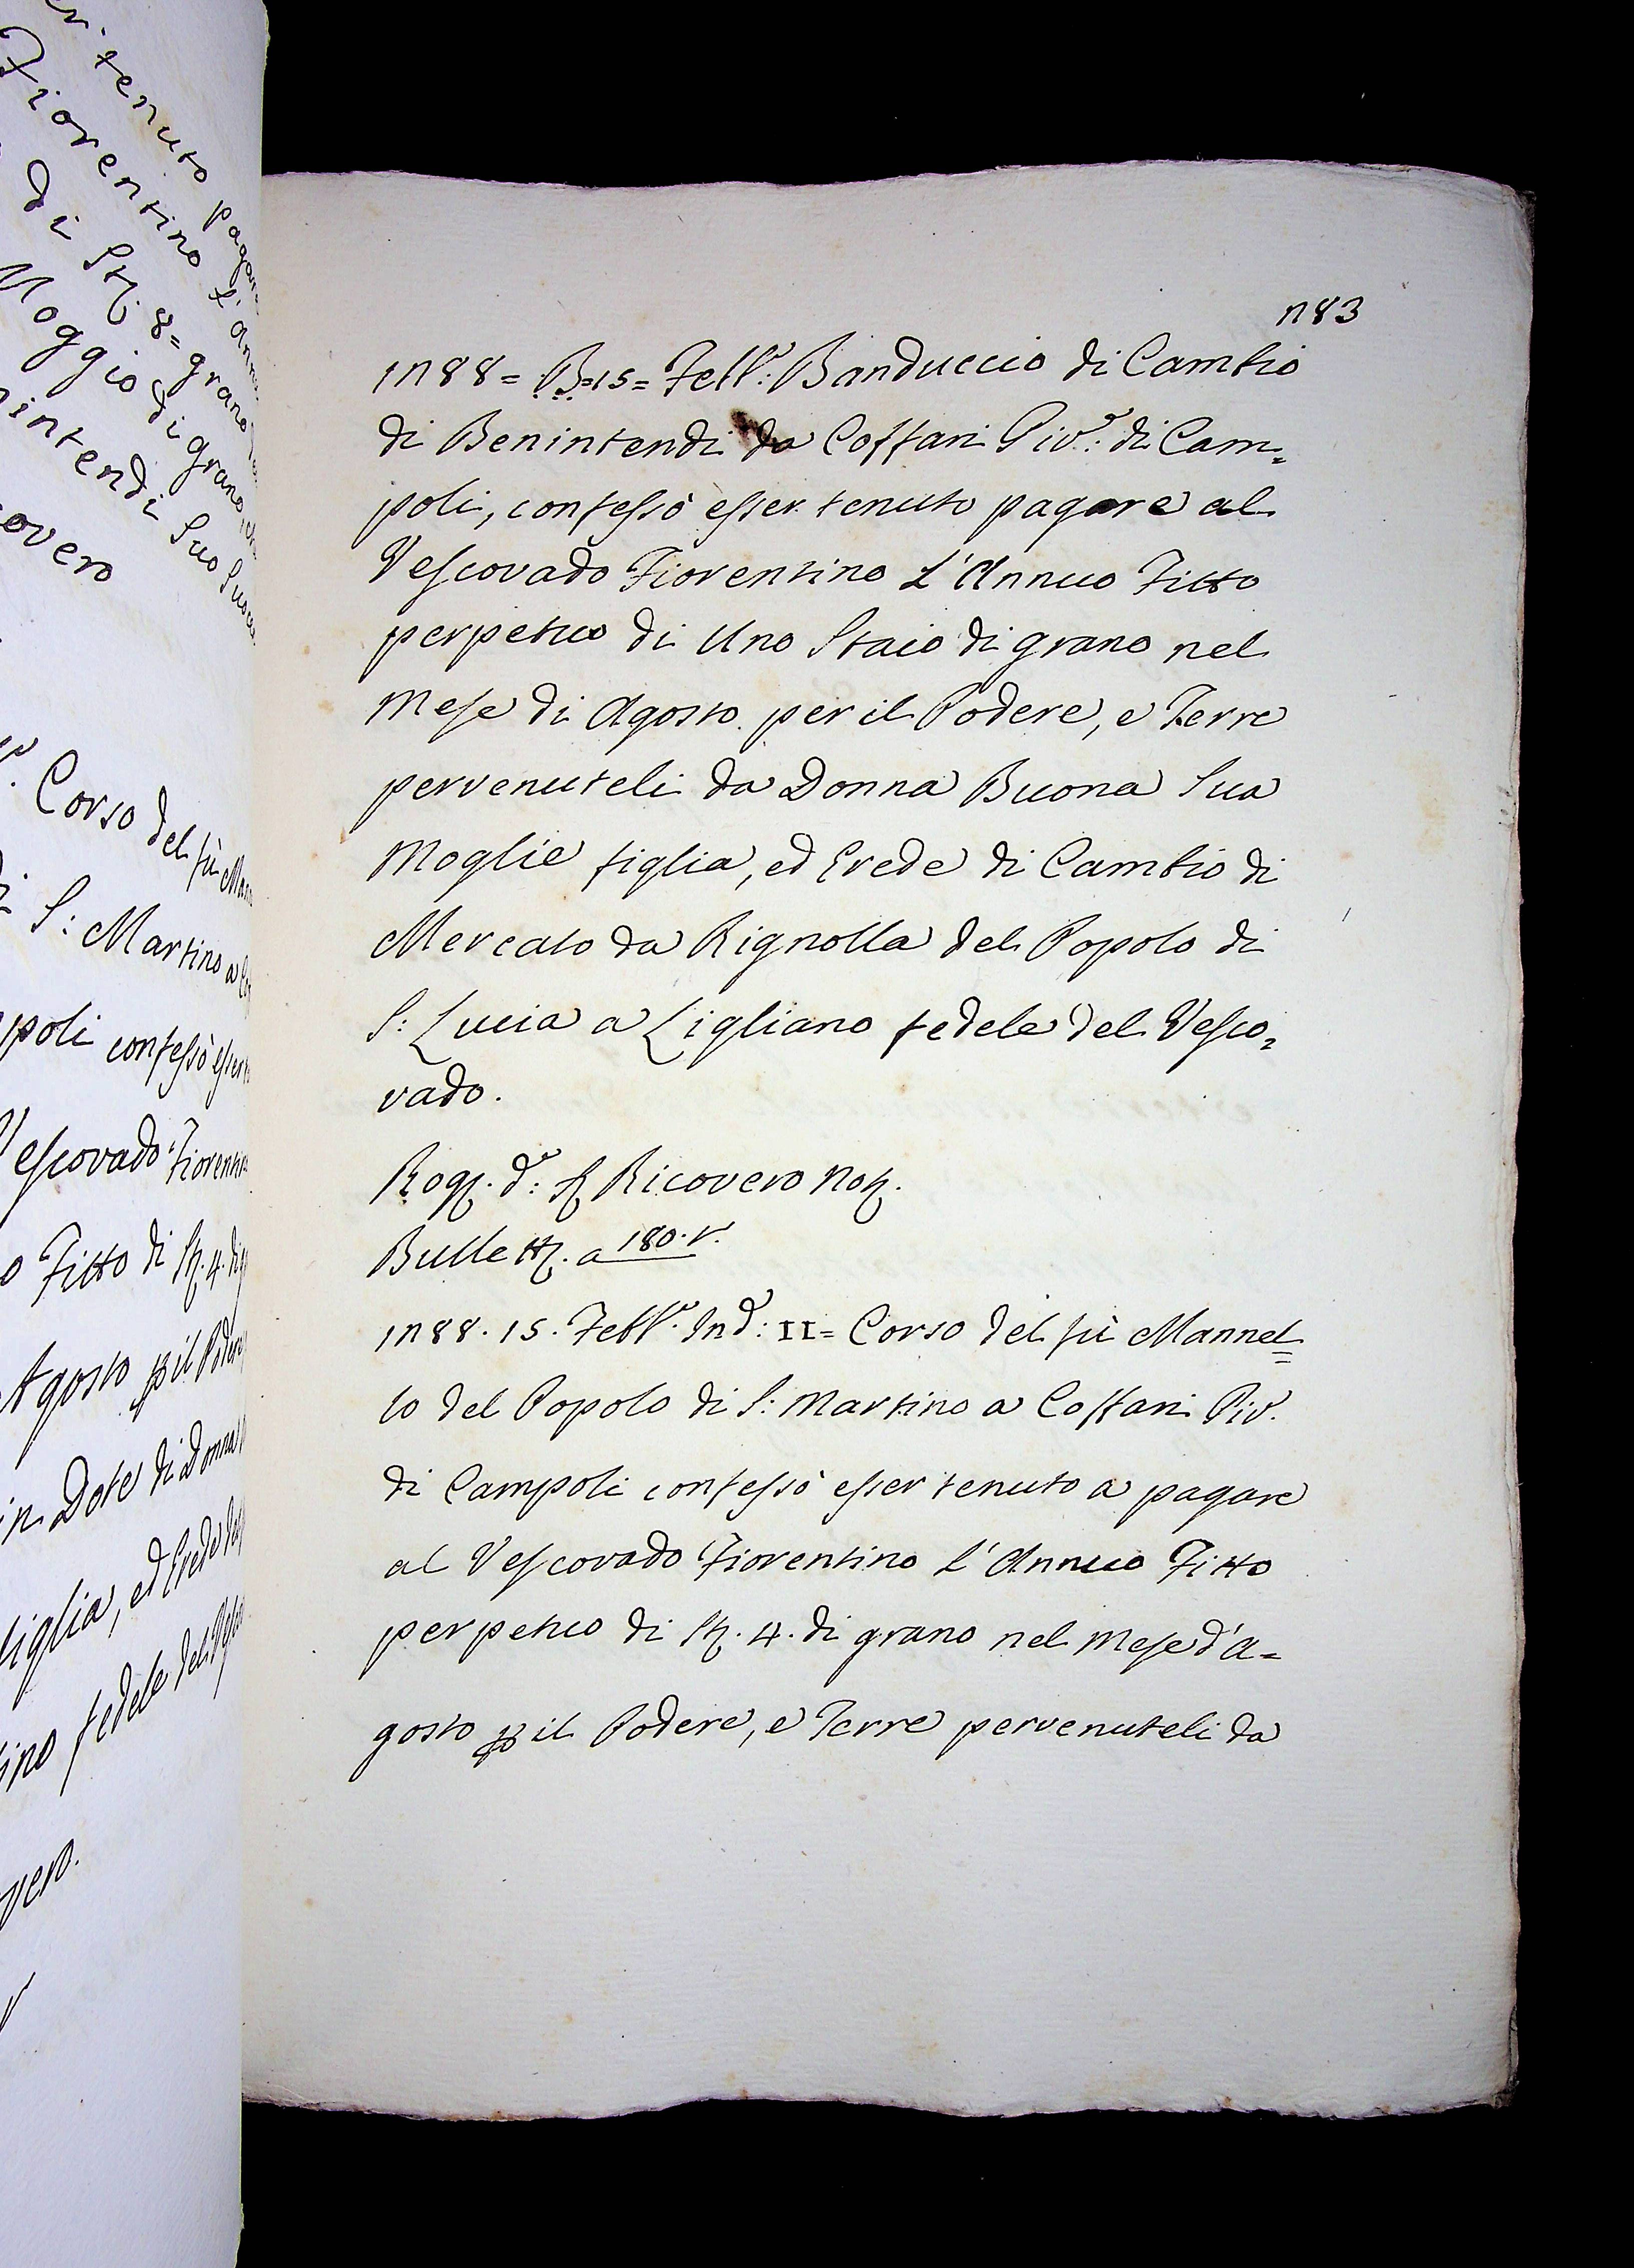 tenuto pagar
Fiorentino L'Ann
di St. 8= grano
Moggio di grano
intendi Suo
overo
Corso del fù Man
S: Martino a Co
poli confessò esser
Vescovado Fiorentin
o Fitto di St. 4. di
Agosto p il Podere
in Dote di Donna
figlia, ed Erede
ino fedele del Vesco
vero.
283
1288= B=15= Febb.º: Banduccio di Cambio
di Benintendi da Coffani Piv.e: di Cam=
poli, confessò esser tenuto pagare al
Vescovado Fiorentino L'Annuo Fitto
perpetuo di Uno Staio di grano nel
Mese di Agosto per il Podere, e Terre
pervenuteli da Donna Buona Sua
Moglie figlia, ed Erede di Cambio di
Mercato da Rignolla del Popolo di
S: Lucia a Ligliano fedele del Vesco=
vado.
Rog. d.º: S. Ricovero Not.
Bullett. a 180.v.
1288. 15. Febb.º Ind.e: II= Corso del fù Mannel=
lo del Popolo di S: Martino a Coffani Piv.
di Campoli confessò esser tenuto a pagare
al Vescovado Fiorentino L'Annuo Fitto
perpetuo di St. 4. di grano nel Mese d'A=
gosto p il Podere, e Terre pervenuteli da